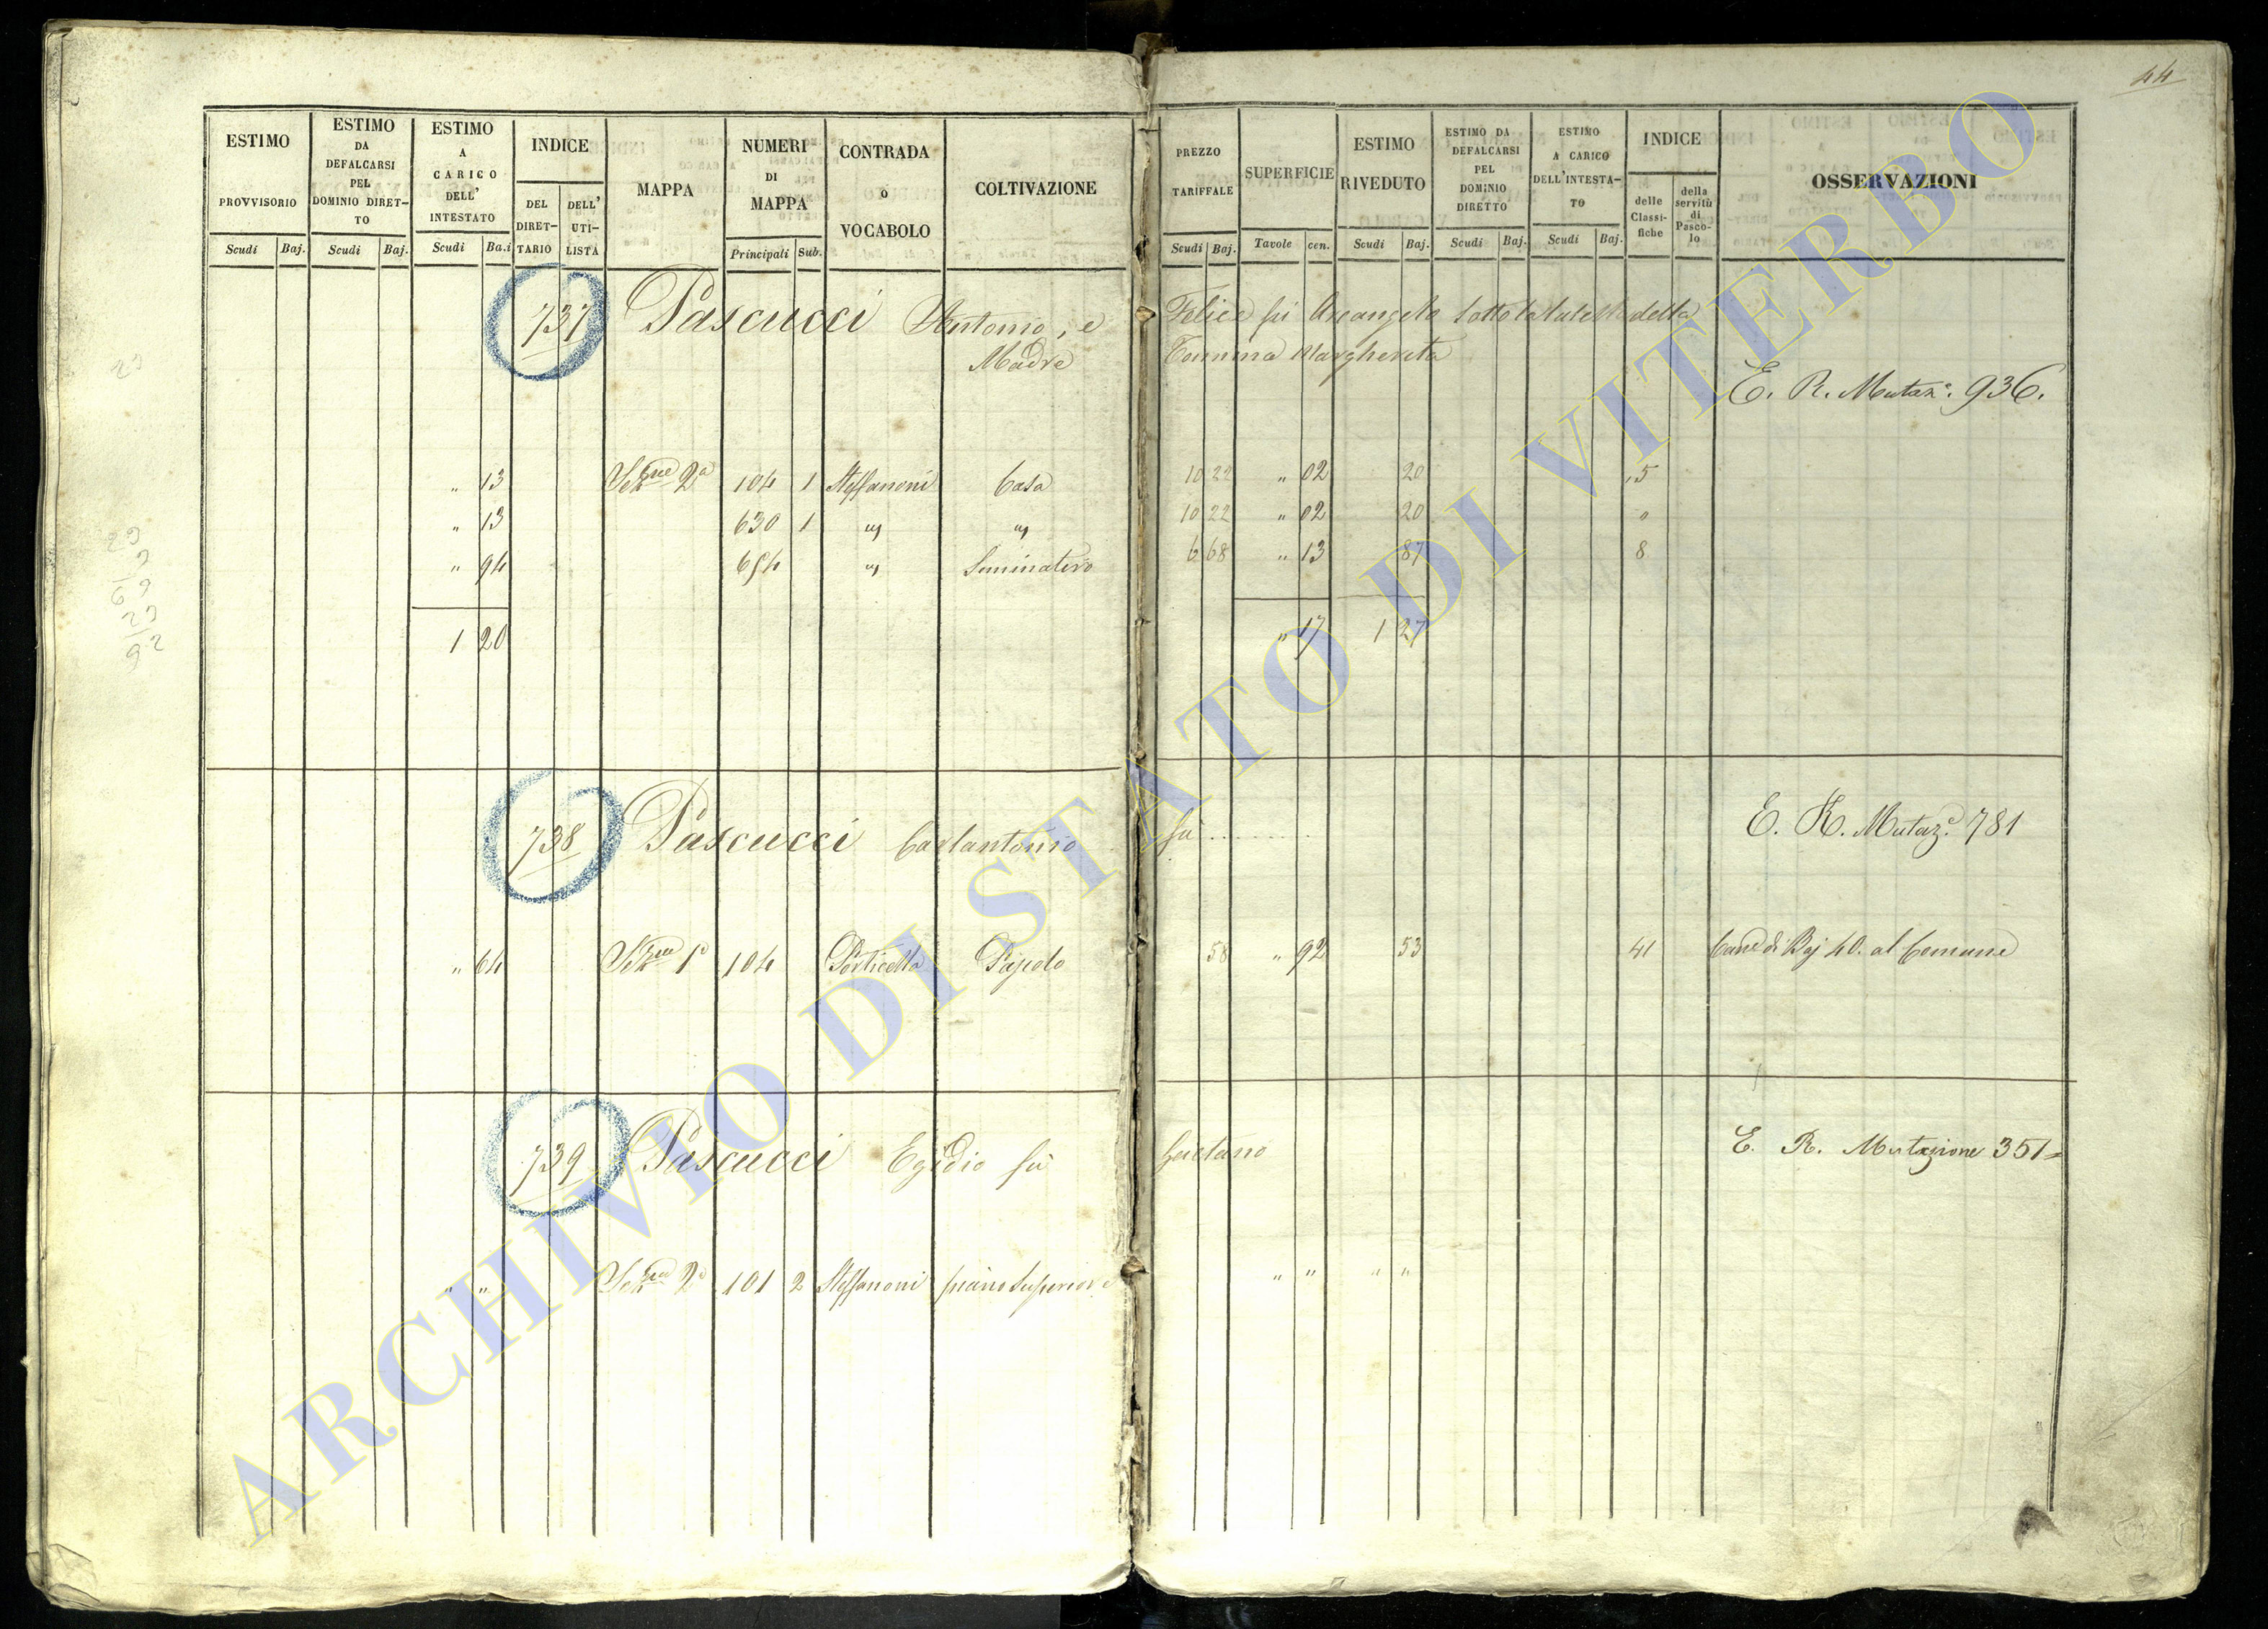 44
ESTIMO PROVVISORIO
ESTIMO DA DEFALCARSI PEL DOMINIO DIRET-TO
ESTIMO A CARICO DELL' INTESTATO
INDICE
DEL DIRET-TARIO
DELL' UTI-LISTA
MAPPA
NUMERI DI MAPPA
CONTRADA o VOCABOLO
COLTIVAZIONE
PREZZO TARIFFALE
SUPERFICIE
ESTIMO RIVEDUTO
ESTIMO DA DEFALCARSI PEL DOMINIO DIRETTO
ESTIMO A CARICO DELL'INTESTA-TO
INDICE
delle Classi-fiche
della servitù di Pasco-lo
OSSERVAZIONI
Scudi Baj. Scudi Baj. Scudi Ba.i Principali Sub.
Scudi Baj. Tavole cen. Scudi Baj. Scudi Baj. Scudi Baj.
737 Pascucci Antonio, e Felice fù Arcangelo sotto la tutela della
Madre Tomma Margherita
E. R. Mutaz.e 936.
" 13 Sezne 2a 104 1 Steffanoni Casa 10 22 " 02 20 5
" 13 630 1 " " 10 22 " 02 20 "
" 94 654 " Seminativo 6 68 " 13 87 8
1 20 " 17 1 27
738 Pascucci Carlantonio fù
E. R. Mutaz.e 781
" 64 Sezne 1a 104 Porticella 58 " 92 53 41 Cane di Baj 40. al Comune
739 Pascucci Egidio fù Gaetano
E. R. Mutazione 351=
" " Sezne 2a 101 2 Steffanoni piano superiore " " " "
ARCHIVIO DI STATO DI VITERBO